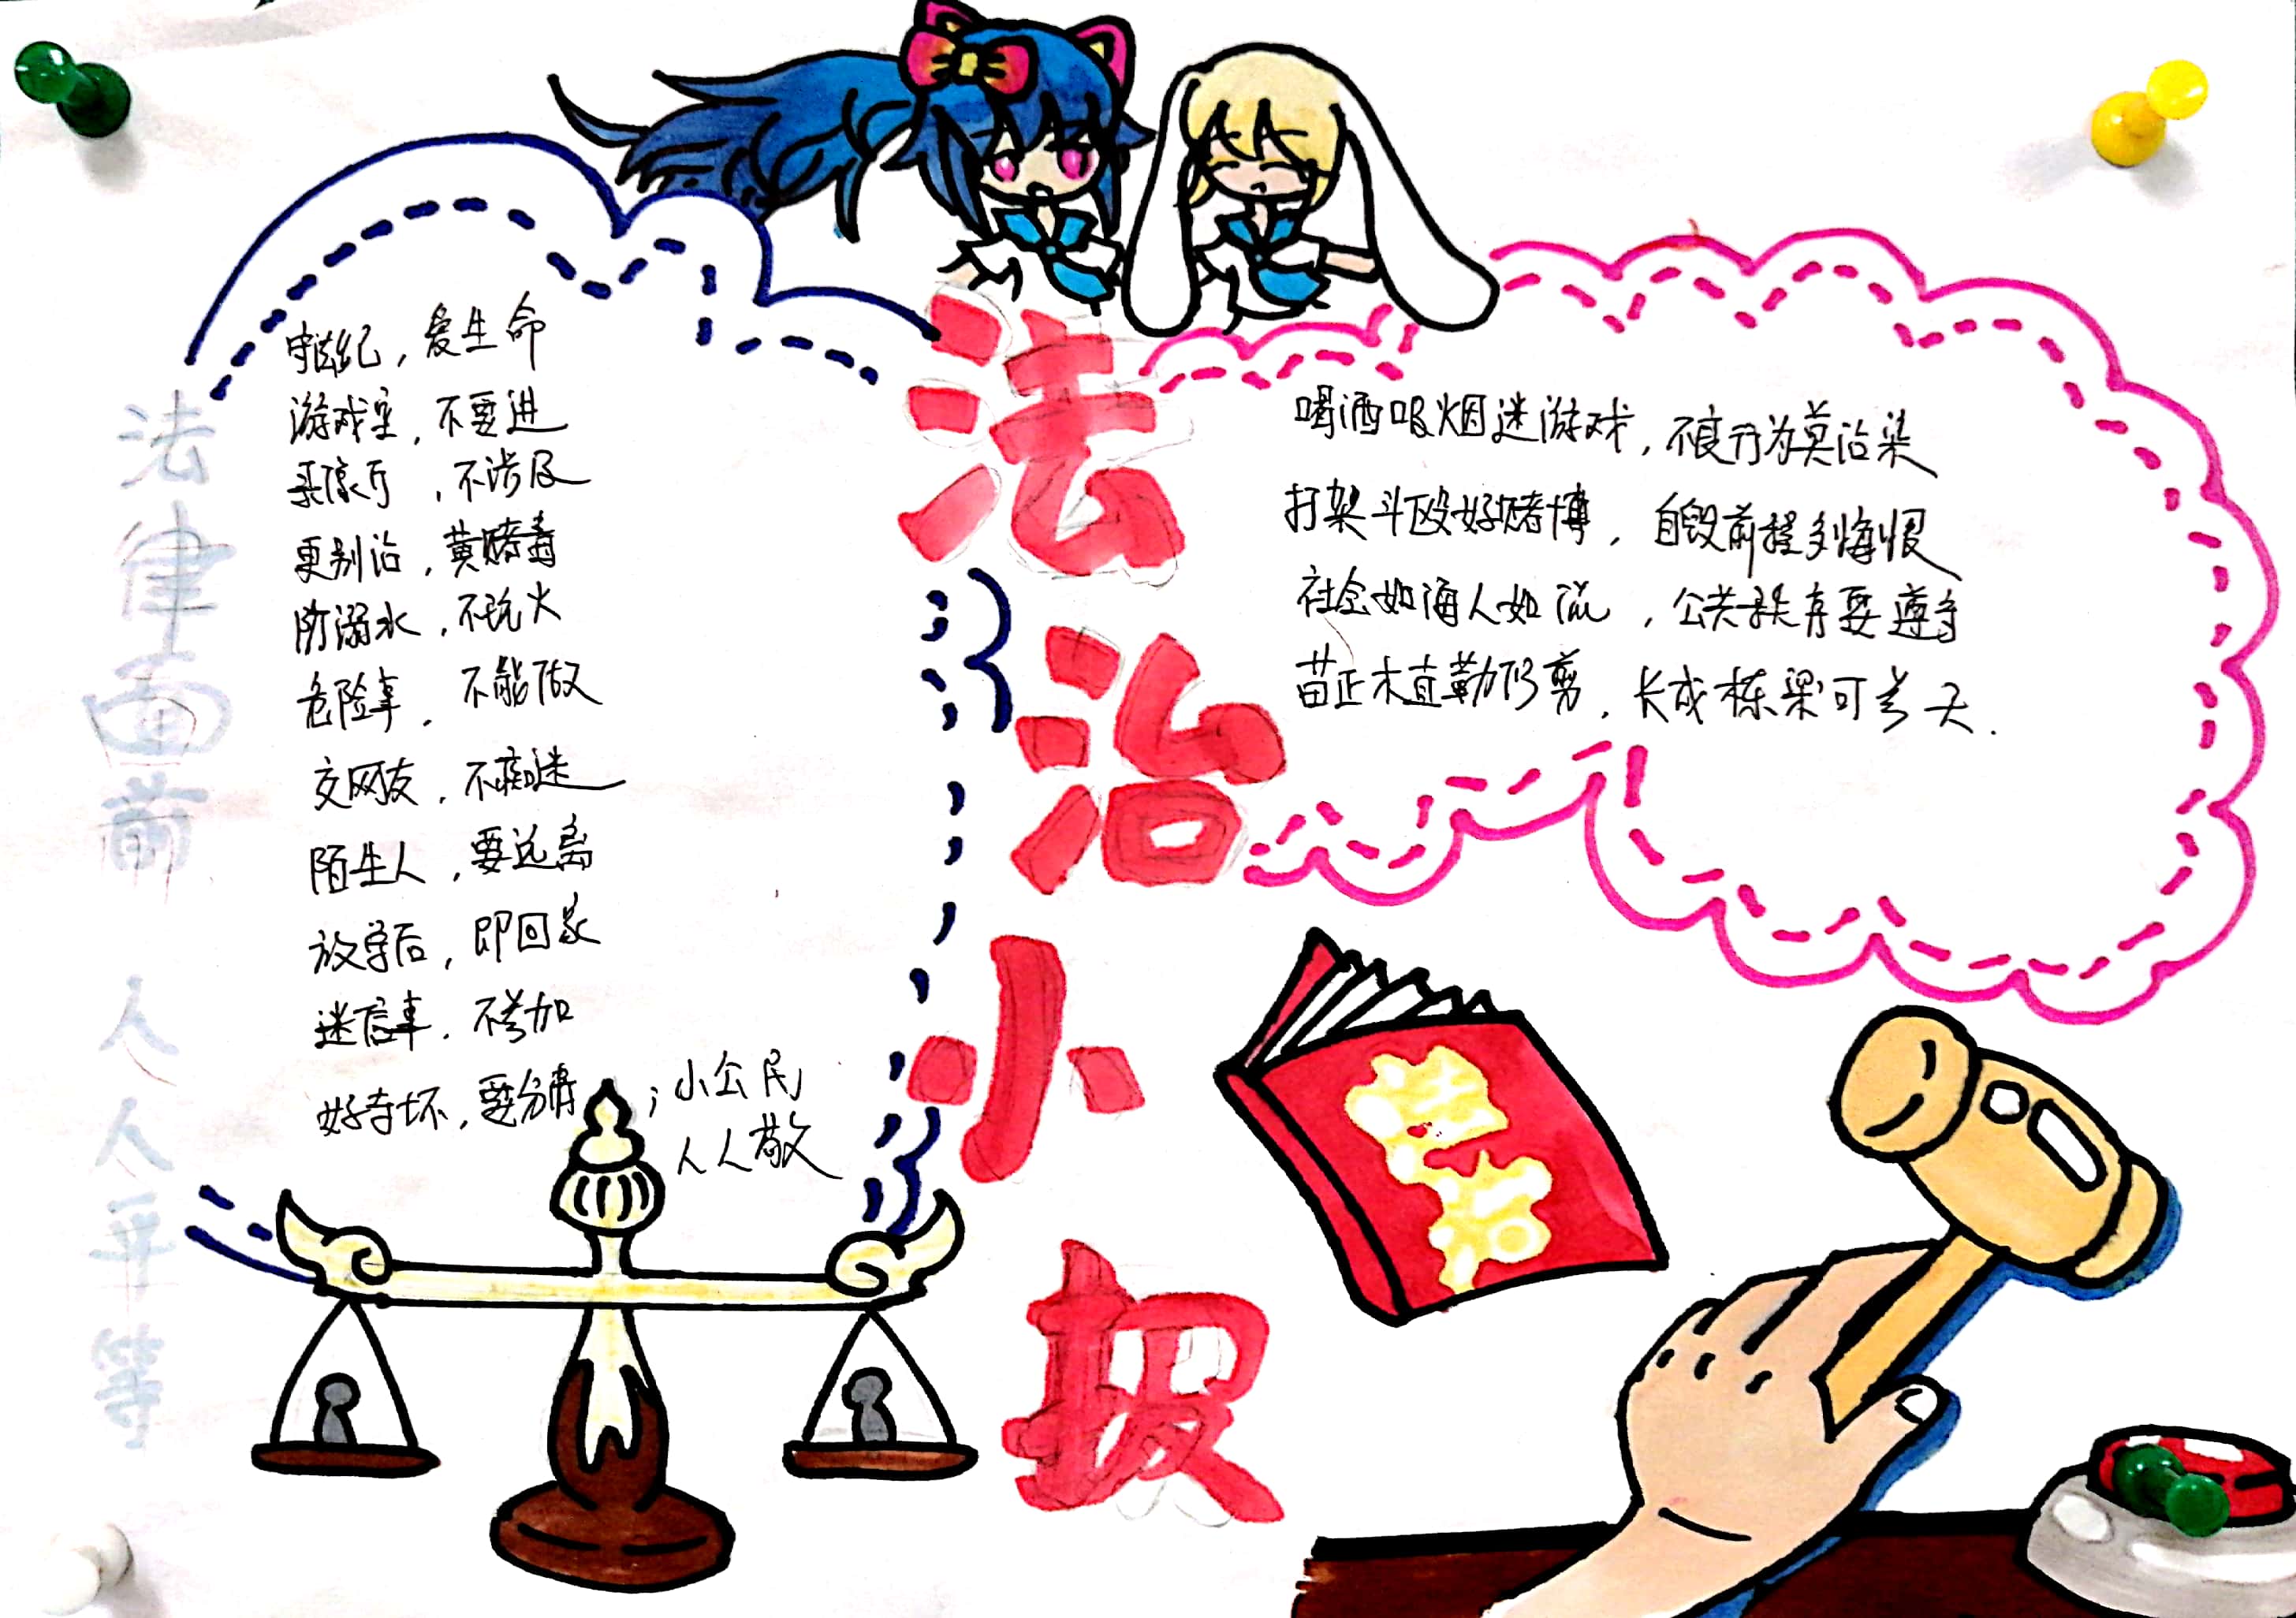 法律面前 人人平等
守法纪，爱生命
游戏室，不要进
录像厅，不涉及
更别沾，黄赌毒
防溺水，不玩火
危险事，不能做
交网友，不痴迷
陌生人，要远离
放学后，即回家
迷信事，不参加
好奇坏，要分清；小公民
人人敬
法治小报
喝酒吸烟迷游戏，不良行为莫沾染
打架斗殴好赌博，自毁前程多悔恨
社会如海人如流，公共秩序要遵守
苗正木直勤修剪，长成栋梁可参天.
宪法